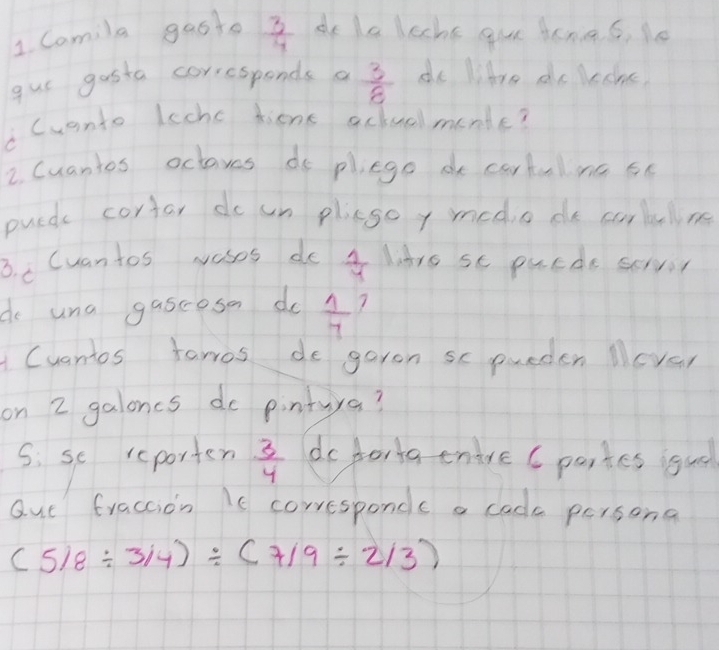 1. Camila gasto 3/4 de la leche que tenia. Si lo
que gasta corresponde a 3/8 de litro de leche.
¿Cuanto leche tiene actualmente?
2. Cuantos octavos de pliego de cartulina se
puede cortar de un pliego y medio de cartulina
3. ¿Cuantos vasos de 1/4 litro se puede servir
de una gaseosa de 1/4?
4 Cuantos tarros de galon se pueden llevar
on 2 galones de pintura?
Si se reporten 3/4 de torta entre 6 partes igual
Que fracción le corresponde a cada persona
(5/8 ÷ 3/4) ÷ (7/9 ÷ 2/3)